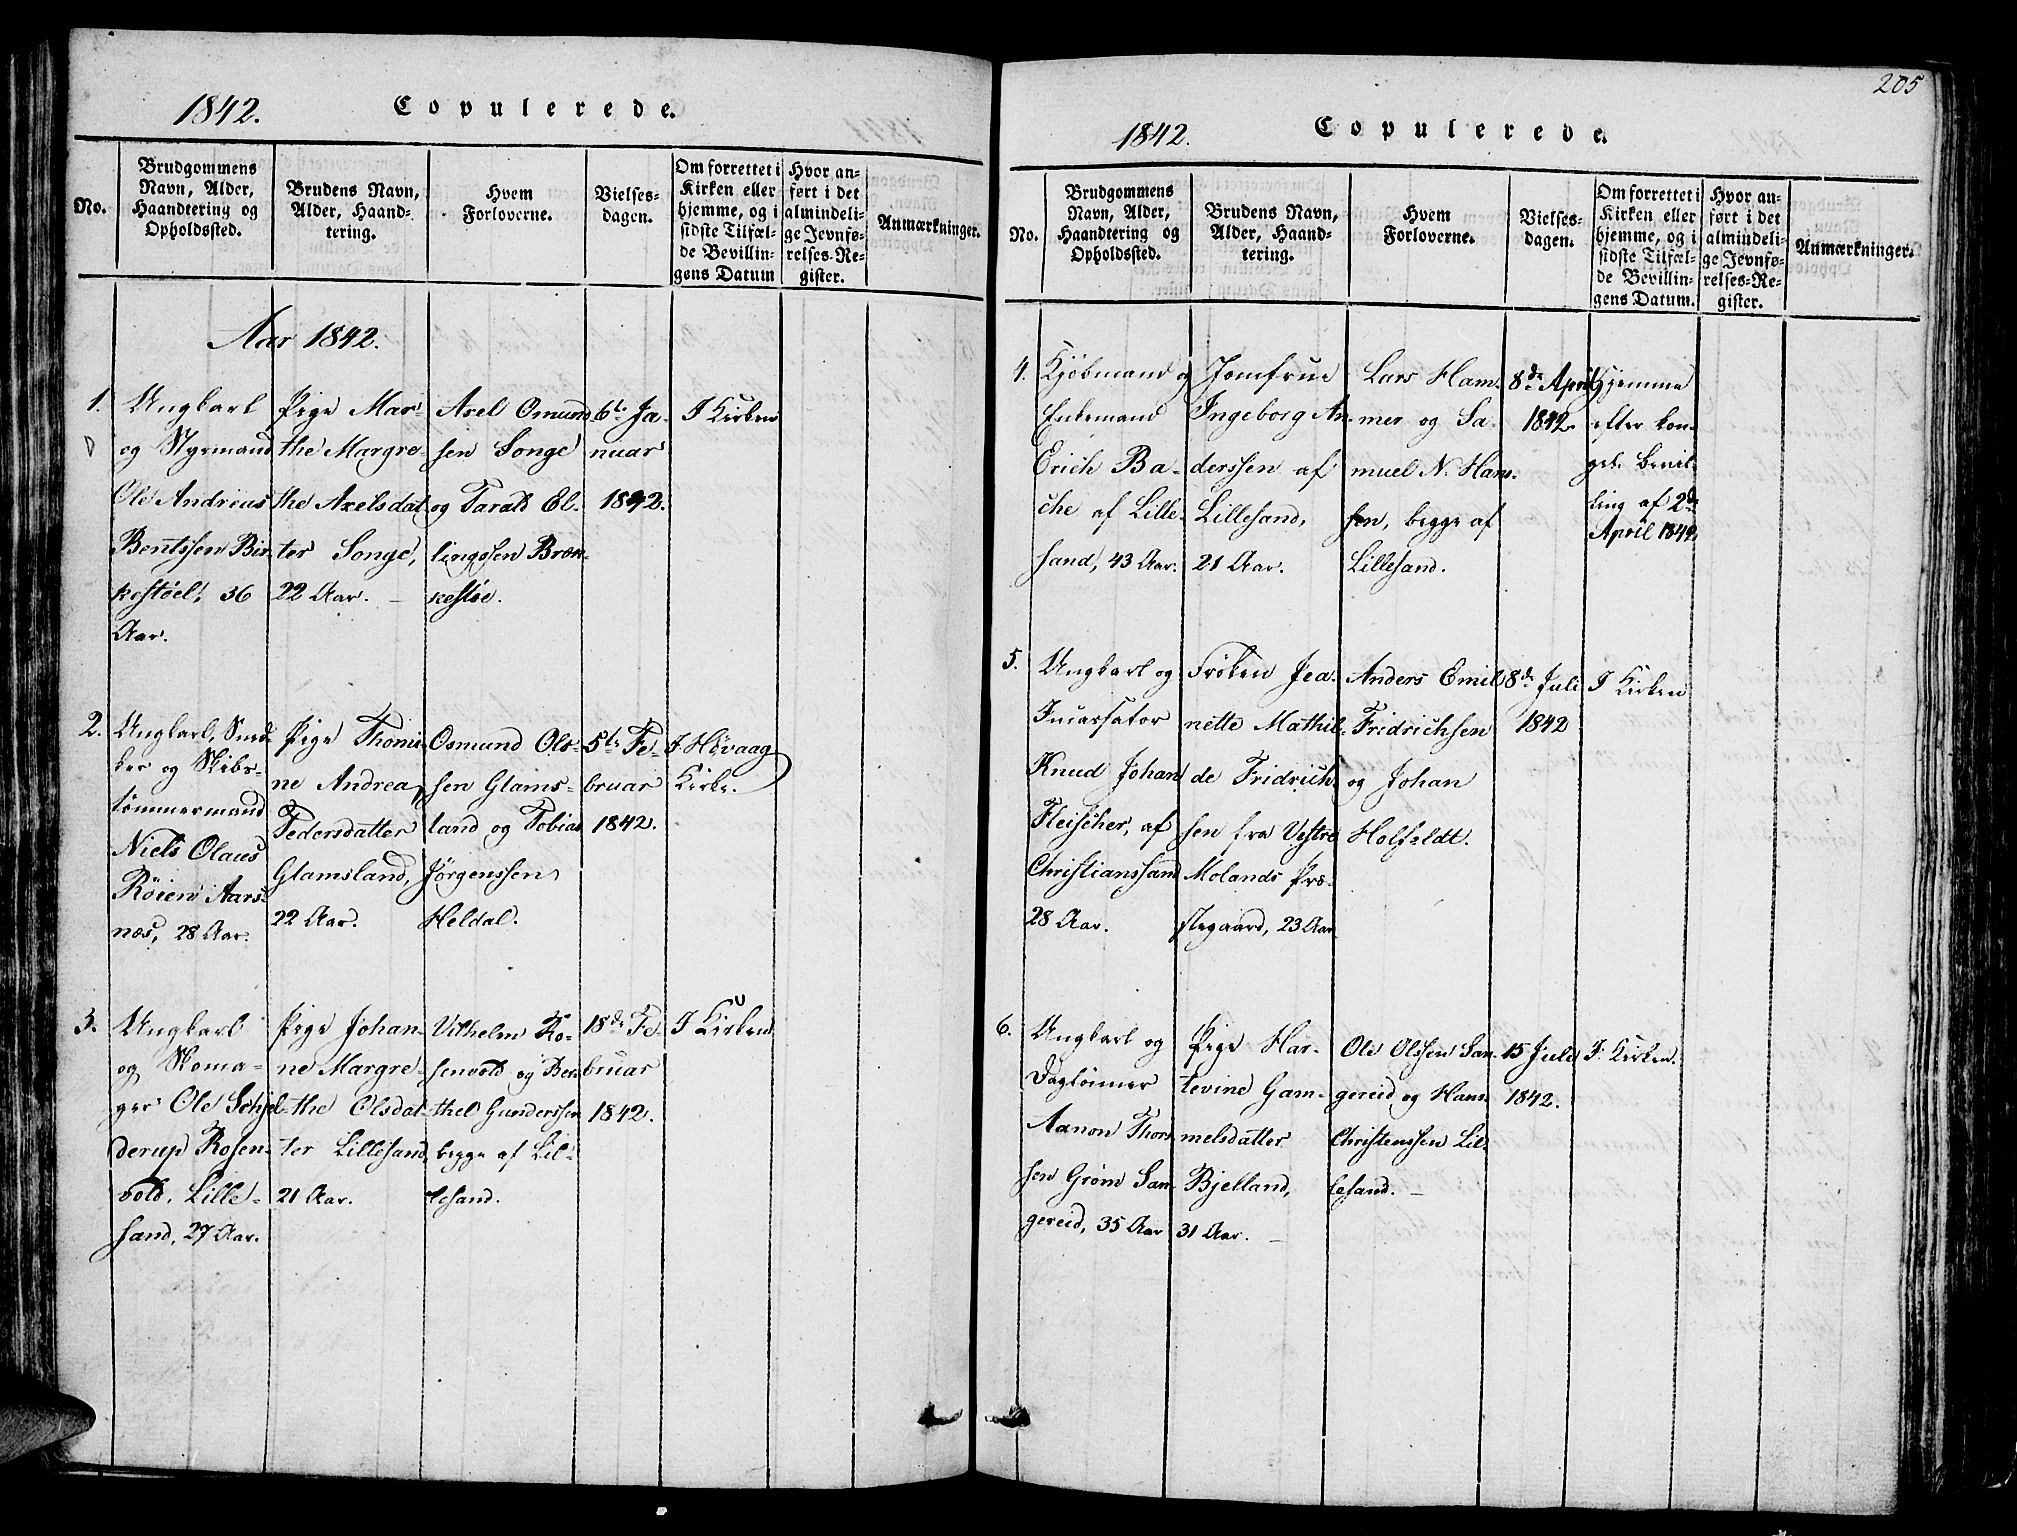 205
1842. Copulerede.
No.
Brudgommens
Navn, Alder,
Haandtering og
Opholdssted.
Brudens Navn,
Alder, Haand-
tering.
Hvem
Forloverne.
Vielses-
dagen.
Om forrettet i
Kirken eller
hjemme, og i
sidste Tilfæl-
de Bevillin-
gens Datum
Hvor an-
ført i det
almindeli-
ge Jevnfø-
relses-Re-
gister.
Anmærkninger.
Aar 1842.
1.
Ungkarl
og Styrmand
Ole Andreas
Bentssen Bir-
kestøel, 36
Aar.
Pige Mar-
the Margre-
the Axelsdat-
ter Songe,
22 Aar. –
Axel Omund-
sen Songe
og Tarald El-
lingssen Bræk-
kestøe.
6te Ja-
nuar
1842.
I Kirken
2.
Ungkarl, Sned-
ker og Skibs-
tømmermand
Niels Olaus
Röien Aars-
næs, 28 Aar.
Pige Thomi-
ne Andrea
Pedersdatter
Glamsland,
22 Aar.
Osmund Ols-
sen Glams-
land og Tobias
Jørgenssen
Heldal.
5te Fe-
bruar
1842.
I Høvaag
Kirke.
3.
Ungkarl
og Skoma-
ger Ole Schjel-
derup Rosen-
vold, Lille-
sand, 27 Aar.
Pige Johan-
ne Margre-
the Olsdat-
ter Lillesand,
21 Aar.
Vilhelm Ro-
senvold og Ber-
thel Gunderssen
begge af Lil-
lesand.
18de Fe-
bruar
1842.
I Kirken
1842. Copulerede.
No.
Brudgommens
Navn, Alder,
Haandtering og
Opholdssted.
Brudens Navn,
Alder, Haand-
tering.
Hvem
Forloverne.
Vielses-
dagen.
Om forrettet i
Kirken eller
hjemme, og i
sidste Tilfæl-
de Bevillin-
gens Datum.
Hvor an-
ført i det
almindeli-
ge Jevnfø-
relses-Re-
gister.
Anmærkninger.
4.
Kjöbmand og
Enkemand
Erich Ba-
che af Lille-
sand, 43 Aar.
Jomfrue
Ingeborg An-
derssen af
Lillesand,
21 Aar.
Lars Ham-
mer og Sa-
muel N. Han-
sen, begge af
Lillesand.
8de April
1842.
Hjemme
efter kon-
gel. Bevil-
ling af 2de
April 1842.
5.
Ungkarl og
Snarsator
Knud Johan
Fleischer, af
Christianssand
28 Aar.
Frøken Jea-
nette Mathil-
de Fridrich-
sen fra Vestre
Molands Præ-
stegaard, 23 Aar.
Anders Emil
Fridrichsen
og Johan
Holfeldt.
8de Juli
1842
I Kirken
6.
Ungkarl og
Daglönner
Aanon Thors-
sen Grøm San-
gereid, 35 Aar
Pige Har-
tevine Gam-
melsdatter
Bjelland,
31 Aar. –
Ole Olssen San-
gereid og Hans
Christenssen Lil-
lesand. –
15 Juli
1842.
I Kirken.